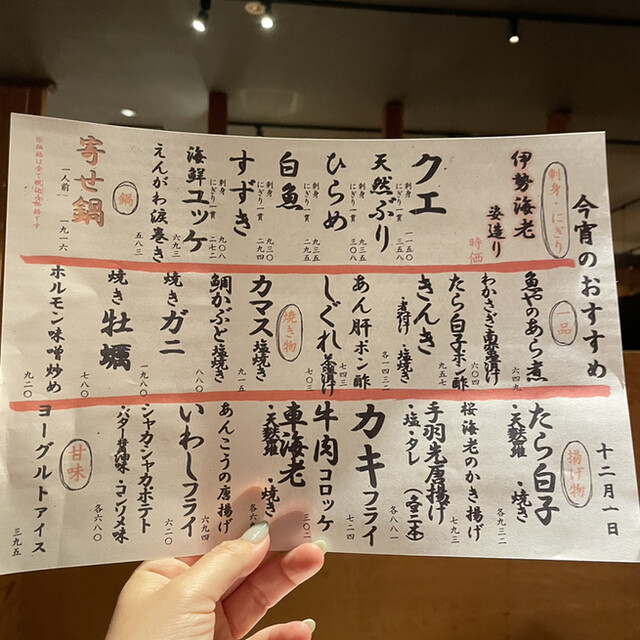 今宵のおすすめ
十二月一日
刺身・にぎり
伊勢海老
姿造り
時価
クエ
刺身
一一五〇
にぎり一貫
三五〇
天然ぶり
ひらめ
刺身
九三五
にぎり一貫
三〇八
白魚
刺身
九三五
にぎり一貫
二九〇
すずき
刺身
九〇八
にぎり一貫
二七二
海鮮ユッケ
六九三
えんがわ涙巻き
五八三
鍋
寄せ鍋
一人前
一九一六
※価格は全て税込み価格です
一品
魚やのあら煮
六四九
わかさぎ南蛮漬け
六〇四
たら白子ポン酢
九五七
きんき
・煮付け・塩焼き
各一四三二
あん肝ポン酢
七四三
しぐれ茶漬け
七〇三
焼き物
カマス塩焼き
九一五
鯛かぶと塩焼き
八八〇
焼きガニ
一九八〇
焼き牡蠣
七八〇
ホルモン味噌炒め
九二〇
揚げ物
たら白子
・天麩羅・焼き
各九三二
桜海老のかき揚げ
七九三
手羽先唐揚げ
・塩・タレ
各八八一
カキフライ
七二四
牛肉コロッケ
三〇二
車海老
・天麩羅・焼き
あんこうの唐揚げ
六九四
いわしフライ
六二〇
シャカシャカポテト
・バター醤油味・コンソメ味
各六八〇
甘味
ヨーグルトアイス
三九五